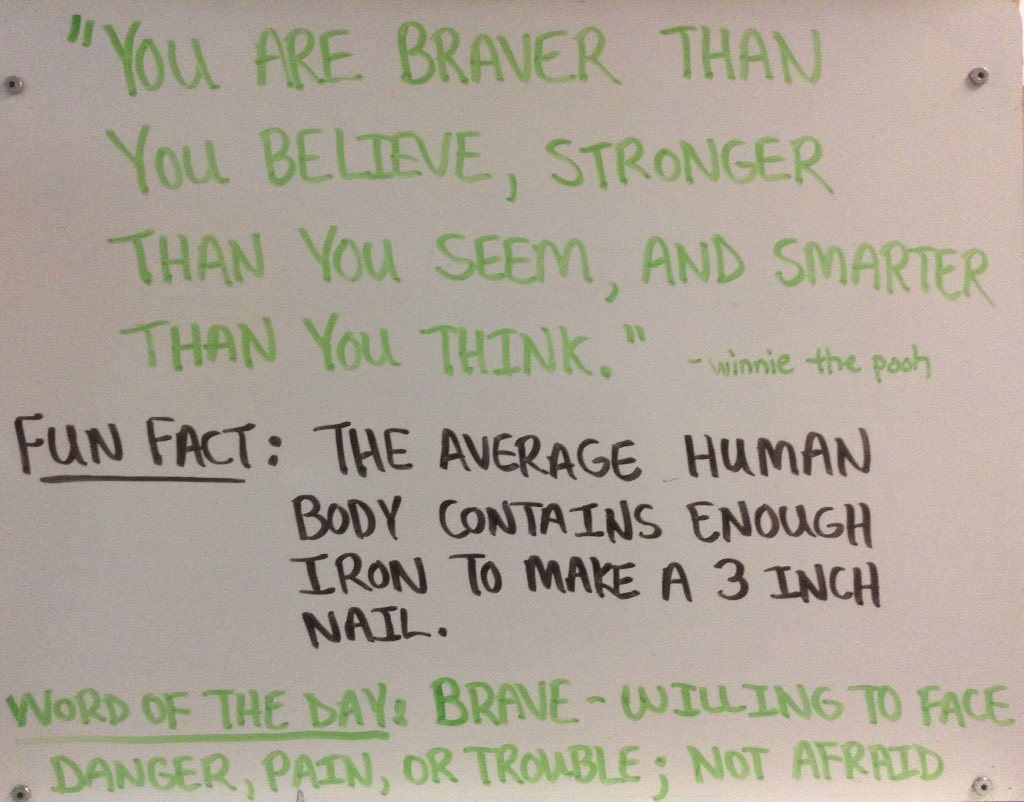 "YOU ARE BRAVER THAN
YOU BELIEVE, STRONGER
THAN YOU SEEM, AND SMARTER
THAN YOU THINK." - winnie the pooh
FUN FACT: THE AVERAGE HUMAN
BODY CONTAINS ENOUGH
IRON TO MAKE A 3 INCH
NAIL.
WORD OF THE DAY: BRAVE - WILLING TO FACE
DANGER, PAIN, OR TROUBLE; NOT AFRAID